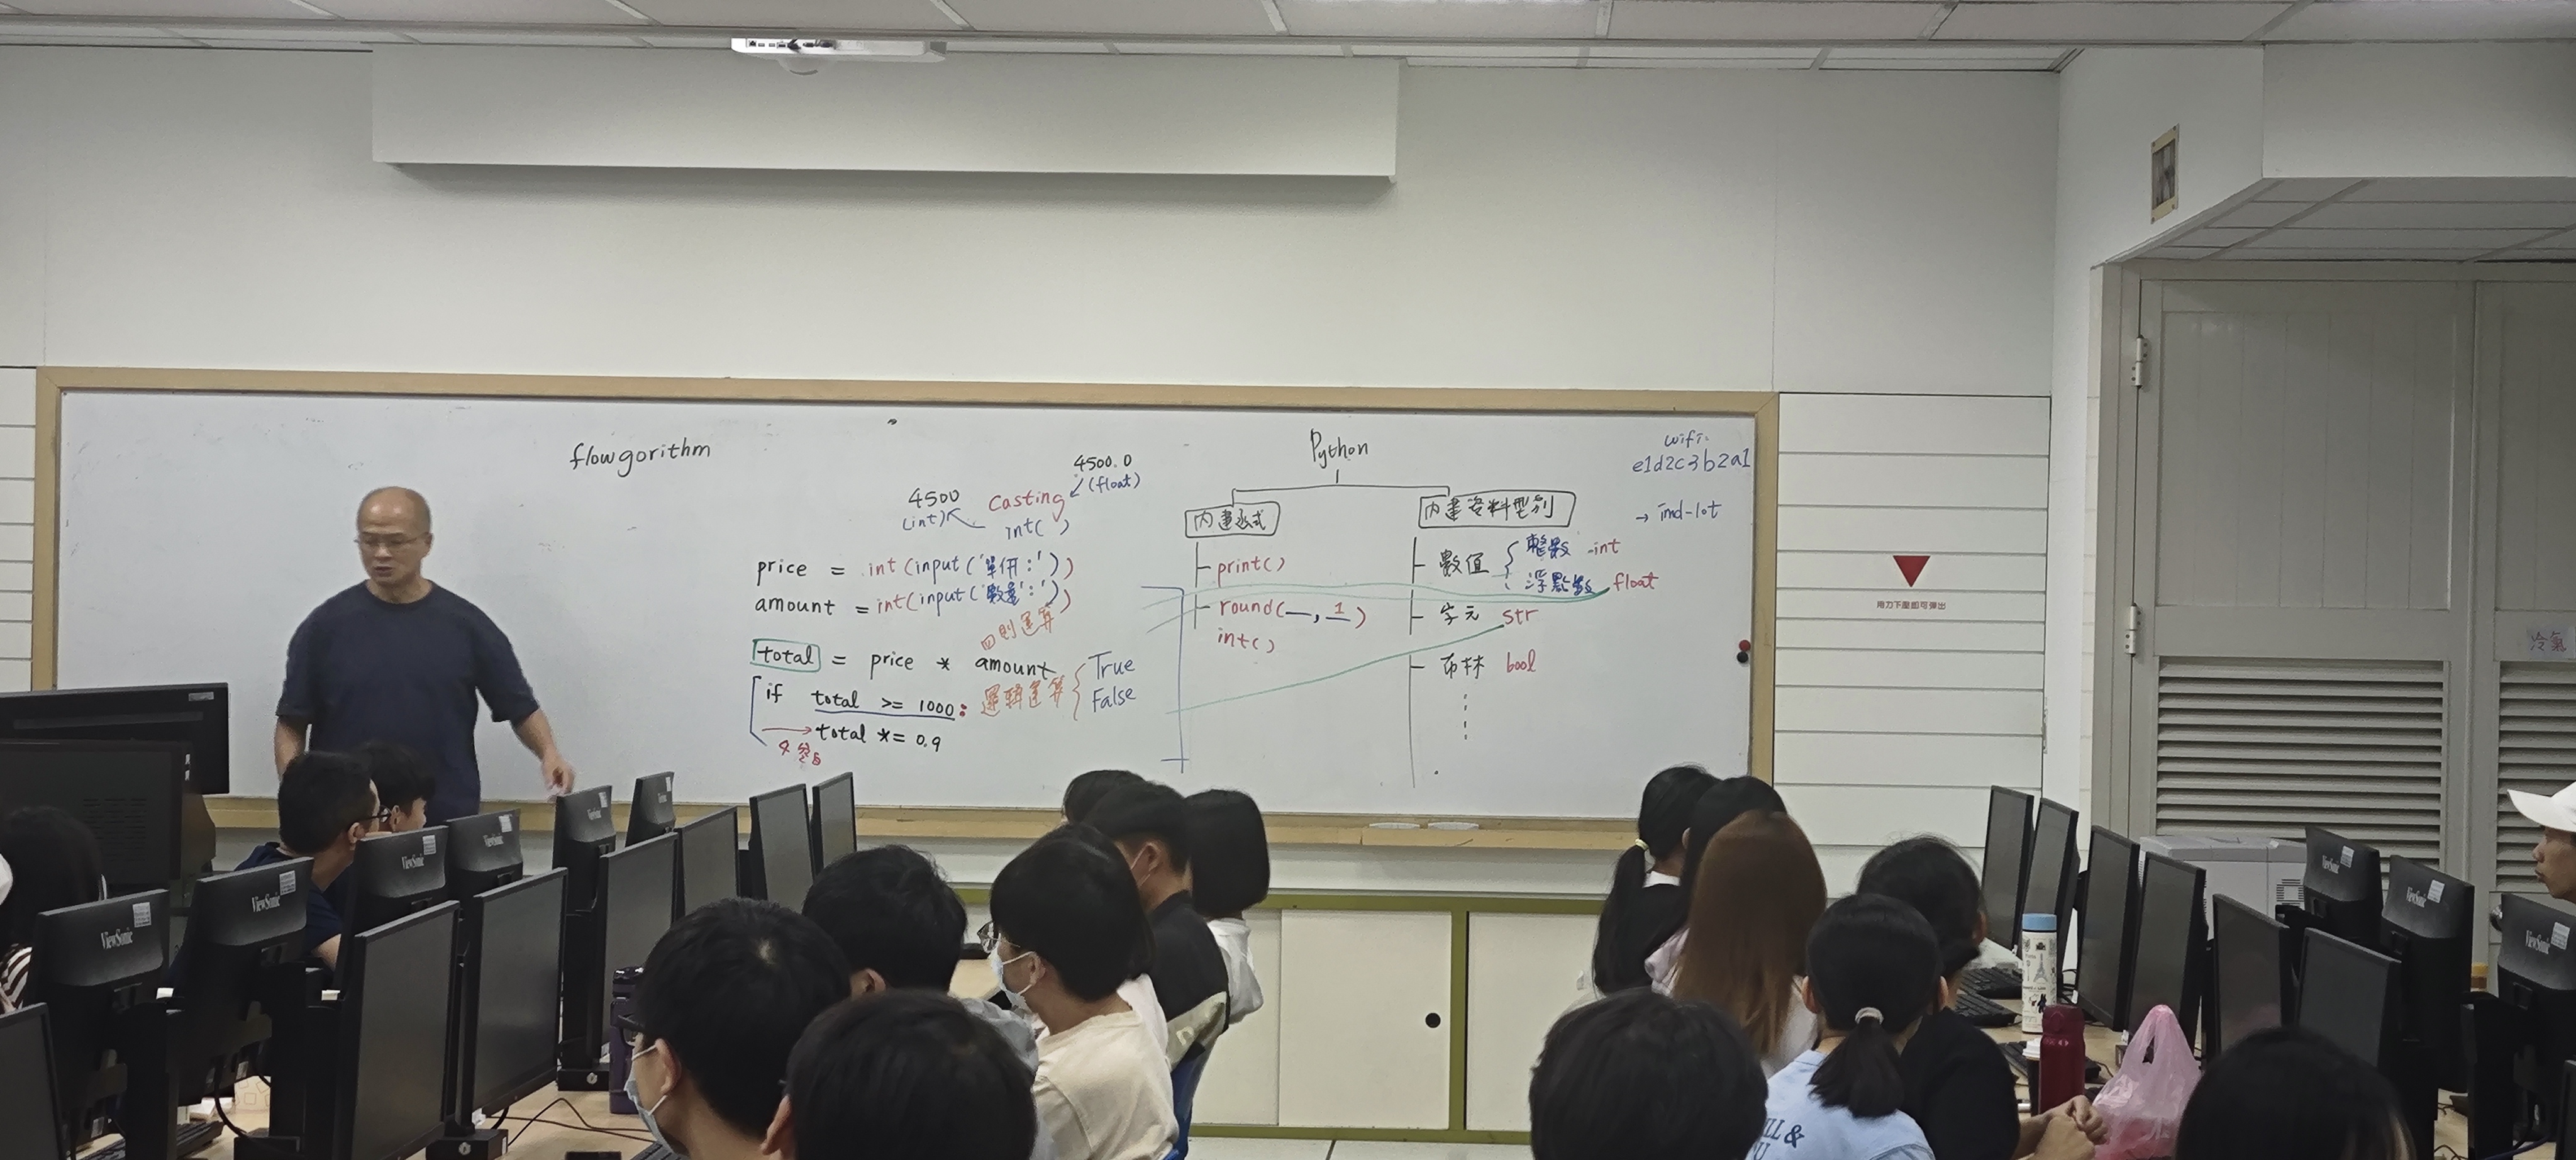 flowgorithm
4500.0
(float)
4500
(int)
Casting
int( )
price = int(input('單價:'))
amount = int(input('數量:'))
四則運算
total = price * amount
if total >= 1000:
邏輯運算
True
False
total *= 0.9
Python
內建函式
print()
round(__, 1)
int()
內建資料型別
數值
整數 int
浮點數 float
字元 str
布林 bool
wifi:
e1d2c3b2a1
→ imd-iot
用力下壓即可彈出
冷氣
ViewSonic
ViewSonic
ViewSonic
ViewSonic
ViewSonic
ViewSonic
ViewSonic
LL &